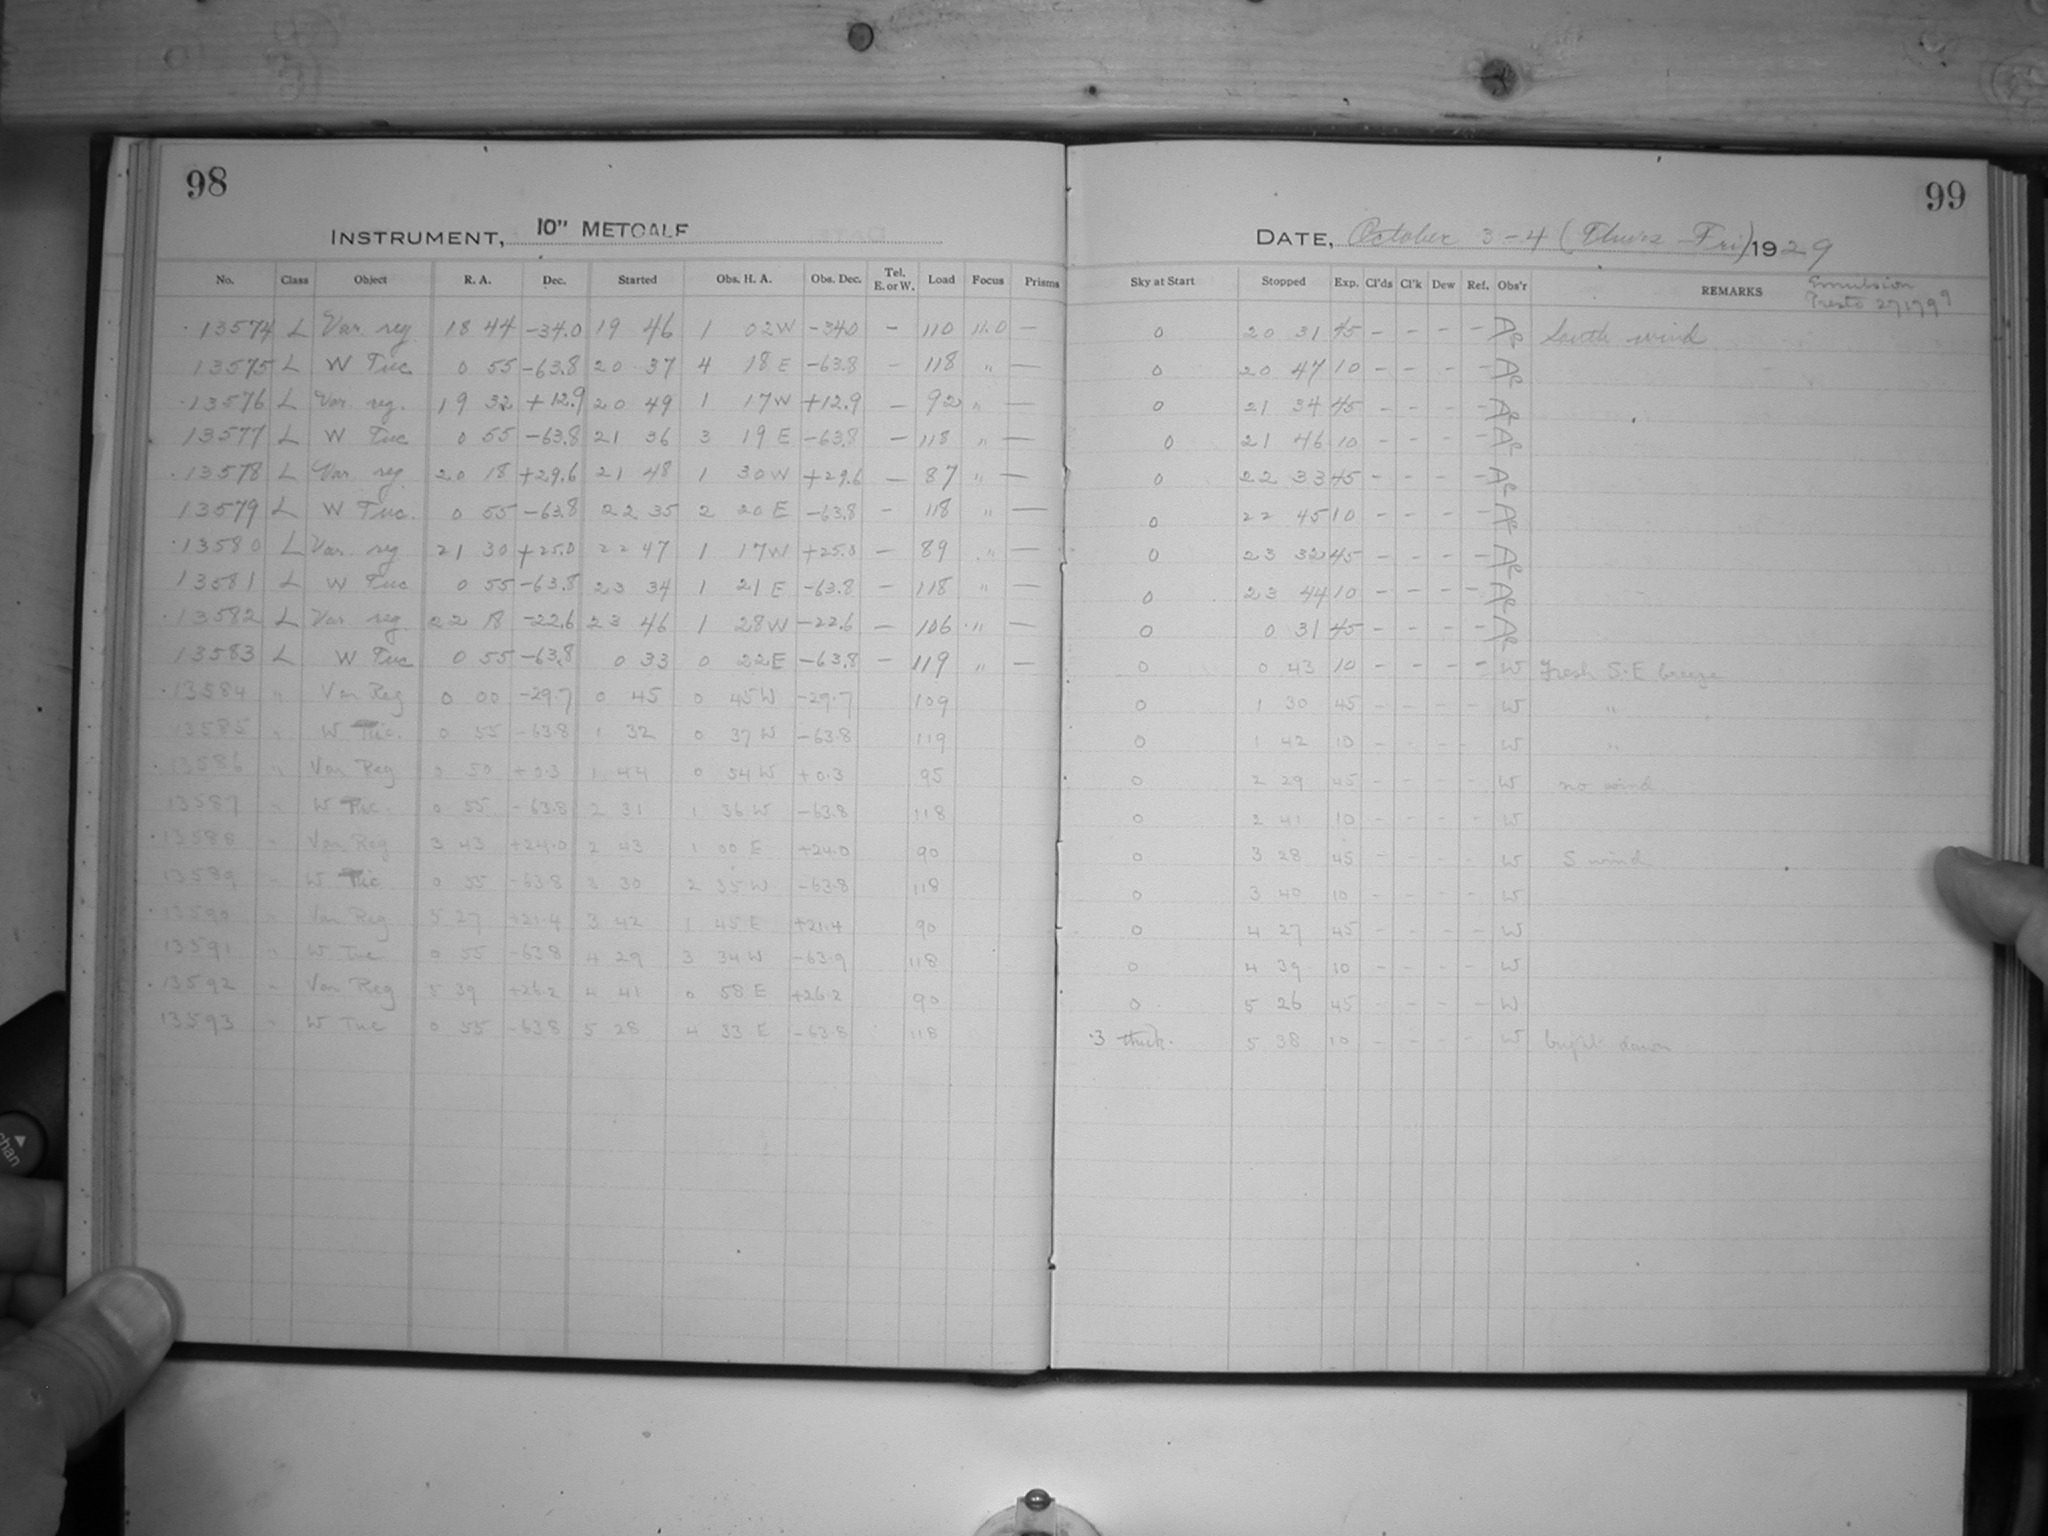 98
INSTRUMENT, 10" METCALF
No. Class Object R. A. Dec. Started Obs. H. A. Obs. Dec. Tel. E. or W. Load Focus Prisms
13574 L Var. reg. 18 44 -34.0 19 46 1 02 W -34.0 - 110 11.0 -
13575 L W Tuc 0 55 -63.8 20 37 4 18 E -63.8 - 118 " -
13576 L Var. reg. 19 32 +12.9 20 49 1 17 W +12.9 - 92 " -
13577 L W Tuc 0 55 -63.8 21 36 3 19 E -63.8 - 118 " -
13578 L Var. reg. 20 18 +29.6 21 48 1 30 W +29.6 - 87 " -
13579 L W Tuc. 0 55 -63.8 22 35 2 20 E -63.8 - 118 " -
13580 L Var. reg 21 30 +25.0 22 47 1 17 W +25.0 - 89 " -
13581 L W Tuc 0 55 -63.8 23 34 1 21 E -63.8 - 118 " -
13582 L Var. reg. 22 18 -22.6 23 46 1 28 W -22.6 - 106 " -
13583 L W Tuc 0 55 -63.8 0 33 0 22 E -63.8 - 119 " -
13584 " Var Reg 0 00 -29.7 0 45 0 45 W -29.7 109
13585 " W Tuc. 0 55 -63.8 1 32 0 37 W -63.8 119
13586 " Var Reg 0 50 +0.3 1 44 0 54 W +0.3 95
13587 " W Tuc. 0 55 -63.8 2 31 1 36 W -63.8 118
13588 " Var Reg 3 43 +24.0 2 43 1 00 E +24.0 90
13589 " W Tuc 0 55 -63.8 3 30 2 35 W -63.8 118
13590 " Var Reg 5 27 +21.4 3 42 1 45 E +21.4 90
13591 " W Tuc 0 55 -63.8 4 29 3 34 W -63.9 118
13592 " Var Reg 5 39 +26.2 4 41 0 58 E +26.2 90
13593 " W Tuc 0 55 -63.8 5 28 4 33 E -63.8 118
99
DATE, October 3-4 (Thurs - Fri) 1929
Sky at Start Stopped Exp. Cl'ds Cl'k Dew Ref. Obs'r REMARKS Emulsion
Presto 271799
0 20 31 45 - - - - AP South wind
0 20 47 10 - - - - AP
0 21 34 45 - - - - AP
0 21 46 10 - - - - AP
0 22 33 45 - - - - AP
0 22 45 10 - - - - AP
0 23 32 45 - - - - AP
0 23 44 10 - - - - AP
0 0 31 45 - - - - AP
0 0 43 10 - - - - W Fresh S.E breeze
0 1 30 45 - - - - W "
0 1 42 10 - - - - W "
0 2 29 45 - - - - W no wind
0 2 41 10 - - - - W
0 3 28 45 - - - - W S wind
0 3 40 10 - - - - W
0 4 27 45 - - - - W
0 4 39 10 - - - - W
0 5 26 45 - - - - W
.3 thick. 5 38 10 - - - - W bright dawn
chan